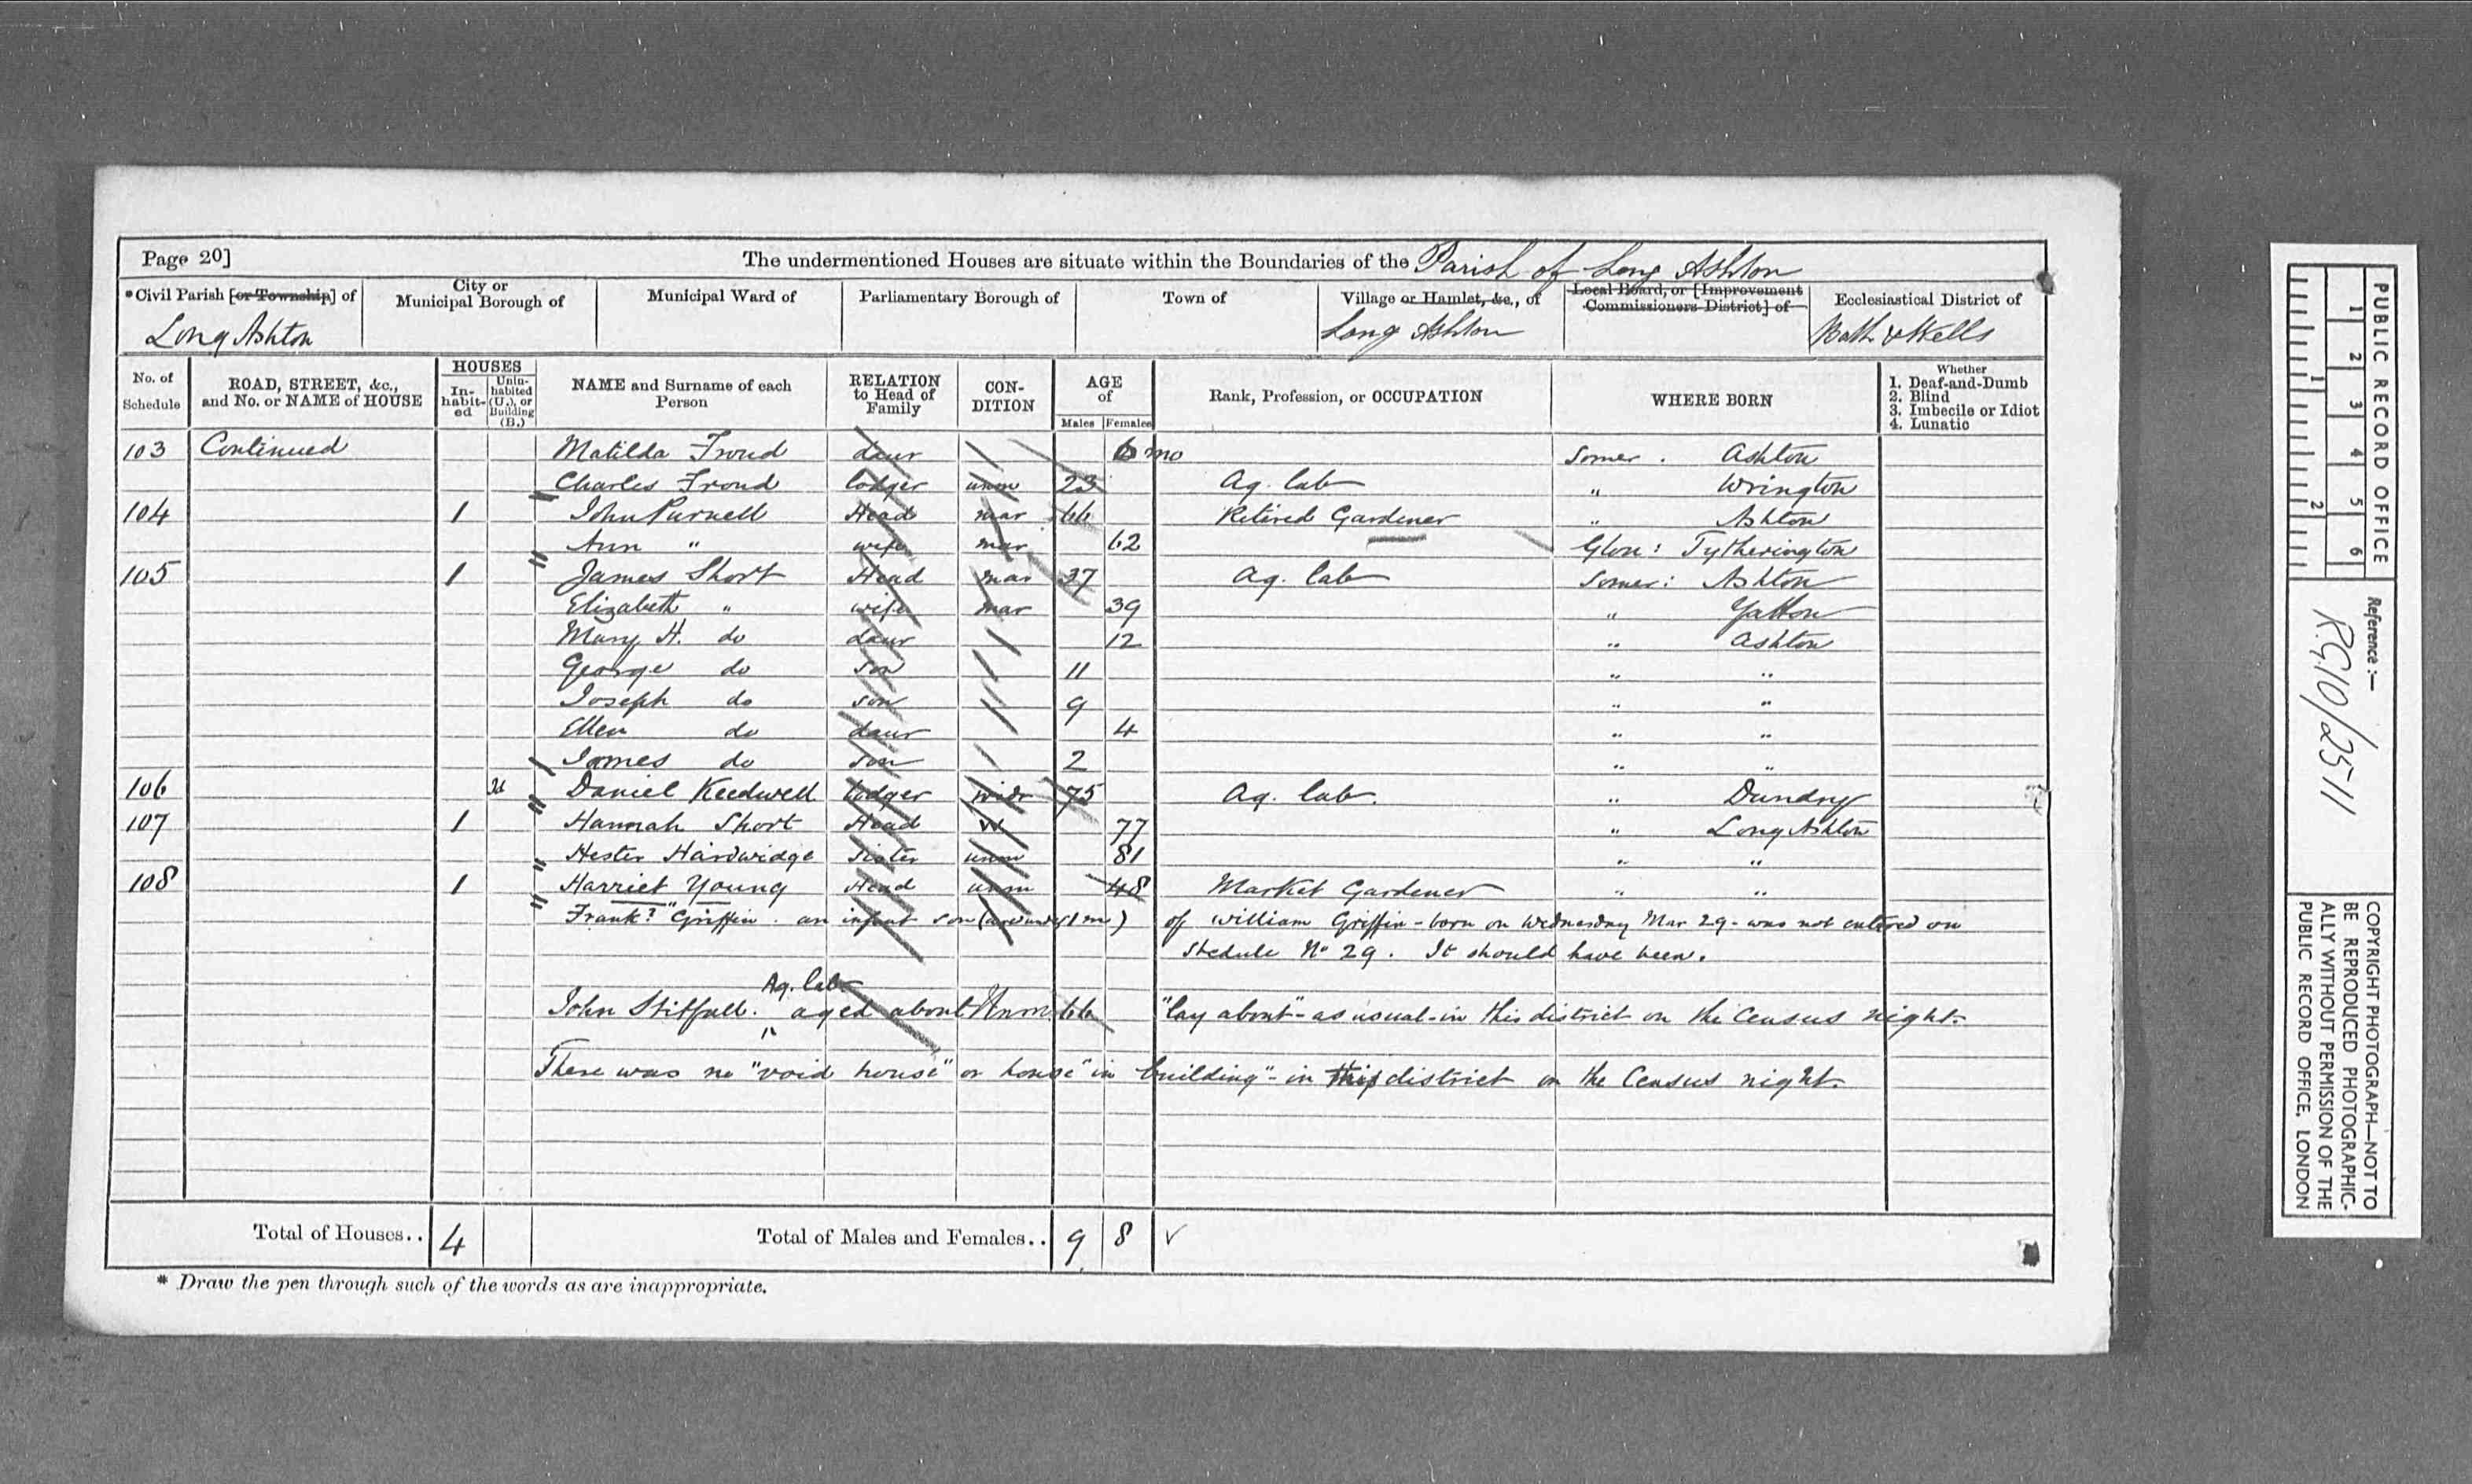 Page 20]
The undermentioned Houses are situate within the Boundaries of the Parish of Long Ashton
*Civil Parish [or Township] of
Long Ashton
City or Municipal Borough of
Municipal Ward of
Parliamentary Borough of
Town of
Village or Hamlet, &c., of
Long Ashton
Local Board, or [Improvement Commissioners District] of
Ecclesiastical District of
Bath & Wells
No. of Schedule
ROAD, STREET, &c., and No. or NAME of HOUSE
HOUSES
In-habit-ed
Unin-habited (U.), or Building (B.)
NAME and Surname of each Person
RELATION to Head of Family
CON-DITION
AGE of
Males Females
Rank, Profession, or OCCUPATION
WHERE BORN
Whether
1. Deaf-and-Dumb
2. Blind
3. Imbecile or Idiot
4. Lunatic
103 Continued Matilda Froud daur 6 mo Somer. Ashton
Charles Froud lodger unm 23 Ag. lab " Wrington
104 1 John Purnell Head mar 66 Retired Gardener " Ashton
Ann " wife mar 62 Glou: Tytherington
105 1 James Short Head mar 37 Ag. lab Somer: Ashton
Elizabeth " wife mar 39 " Yatton
Mary H. do daur 12 " Ashton
George do son 11 " "
Joseph do son 9 " "
Ellen do daur 4 " "
James do son 2 " "
106 Daniel Keedwell lodger widr 75 Ag. lab. " Dundry
107 1 Hannah Short Head W 77 " Long Ashton
Hester Hardwidge Sister unm 81 " "
108 1 Harriet Young Head unm 48 Market Gardener " "
Frank? Griffin. an infant son (aged under 1 m) of William Griffin - born on Wednesday Mar 29 - was not entered on
Shedule No 29. It should have been.
Ag. lab
John Stitfall. aged about Unm 66 "lay about" - as usual - in this district on the Census night.
There was no "void house" or house "in building" - in this district on the Census night.
Total of Houses.. 4
Total of Males and Females.. 9 8
* Draw the pen through such of the words as are inappropriate.
PUBLIC RECORD OFFICE
1 2 3 4 5 6
1 2
Reference :—
R.G.10/2511
COPYRIGHT PHOTOGRAPH—NOT TO
BE REPRODUCED PHOTOGRAPHIC-
ALLY WITHOUT PERMISSION OF THE
PUBLIC RECORD OFFICE, LONDON